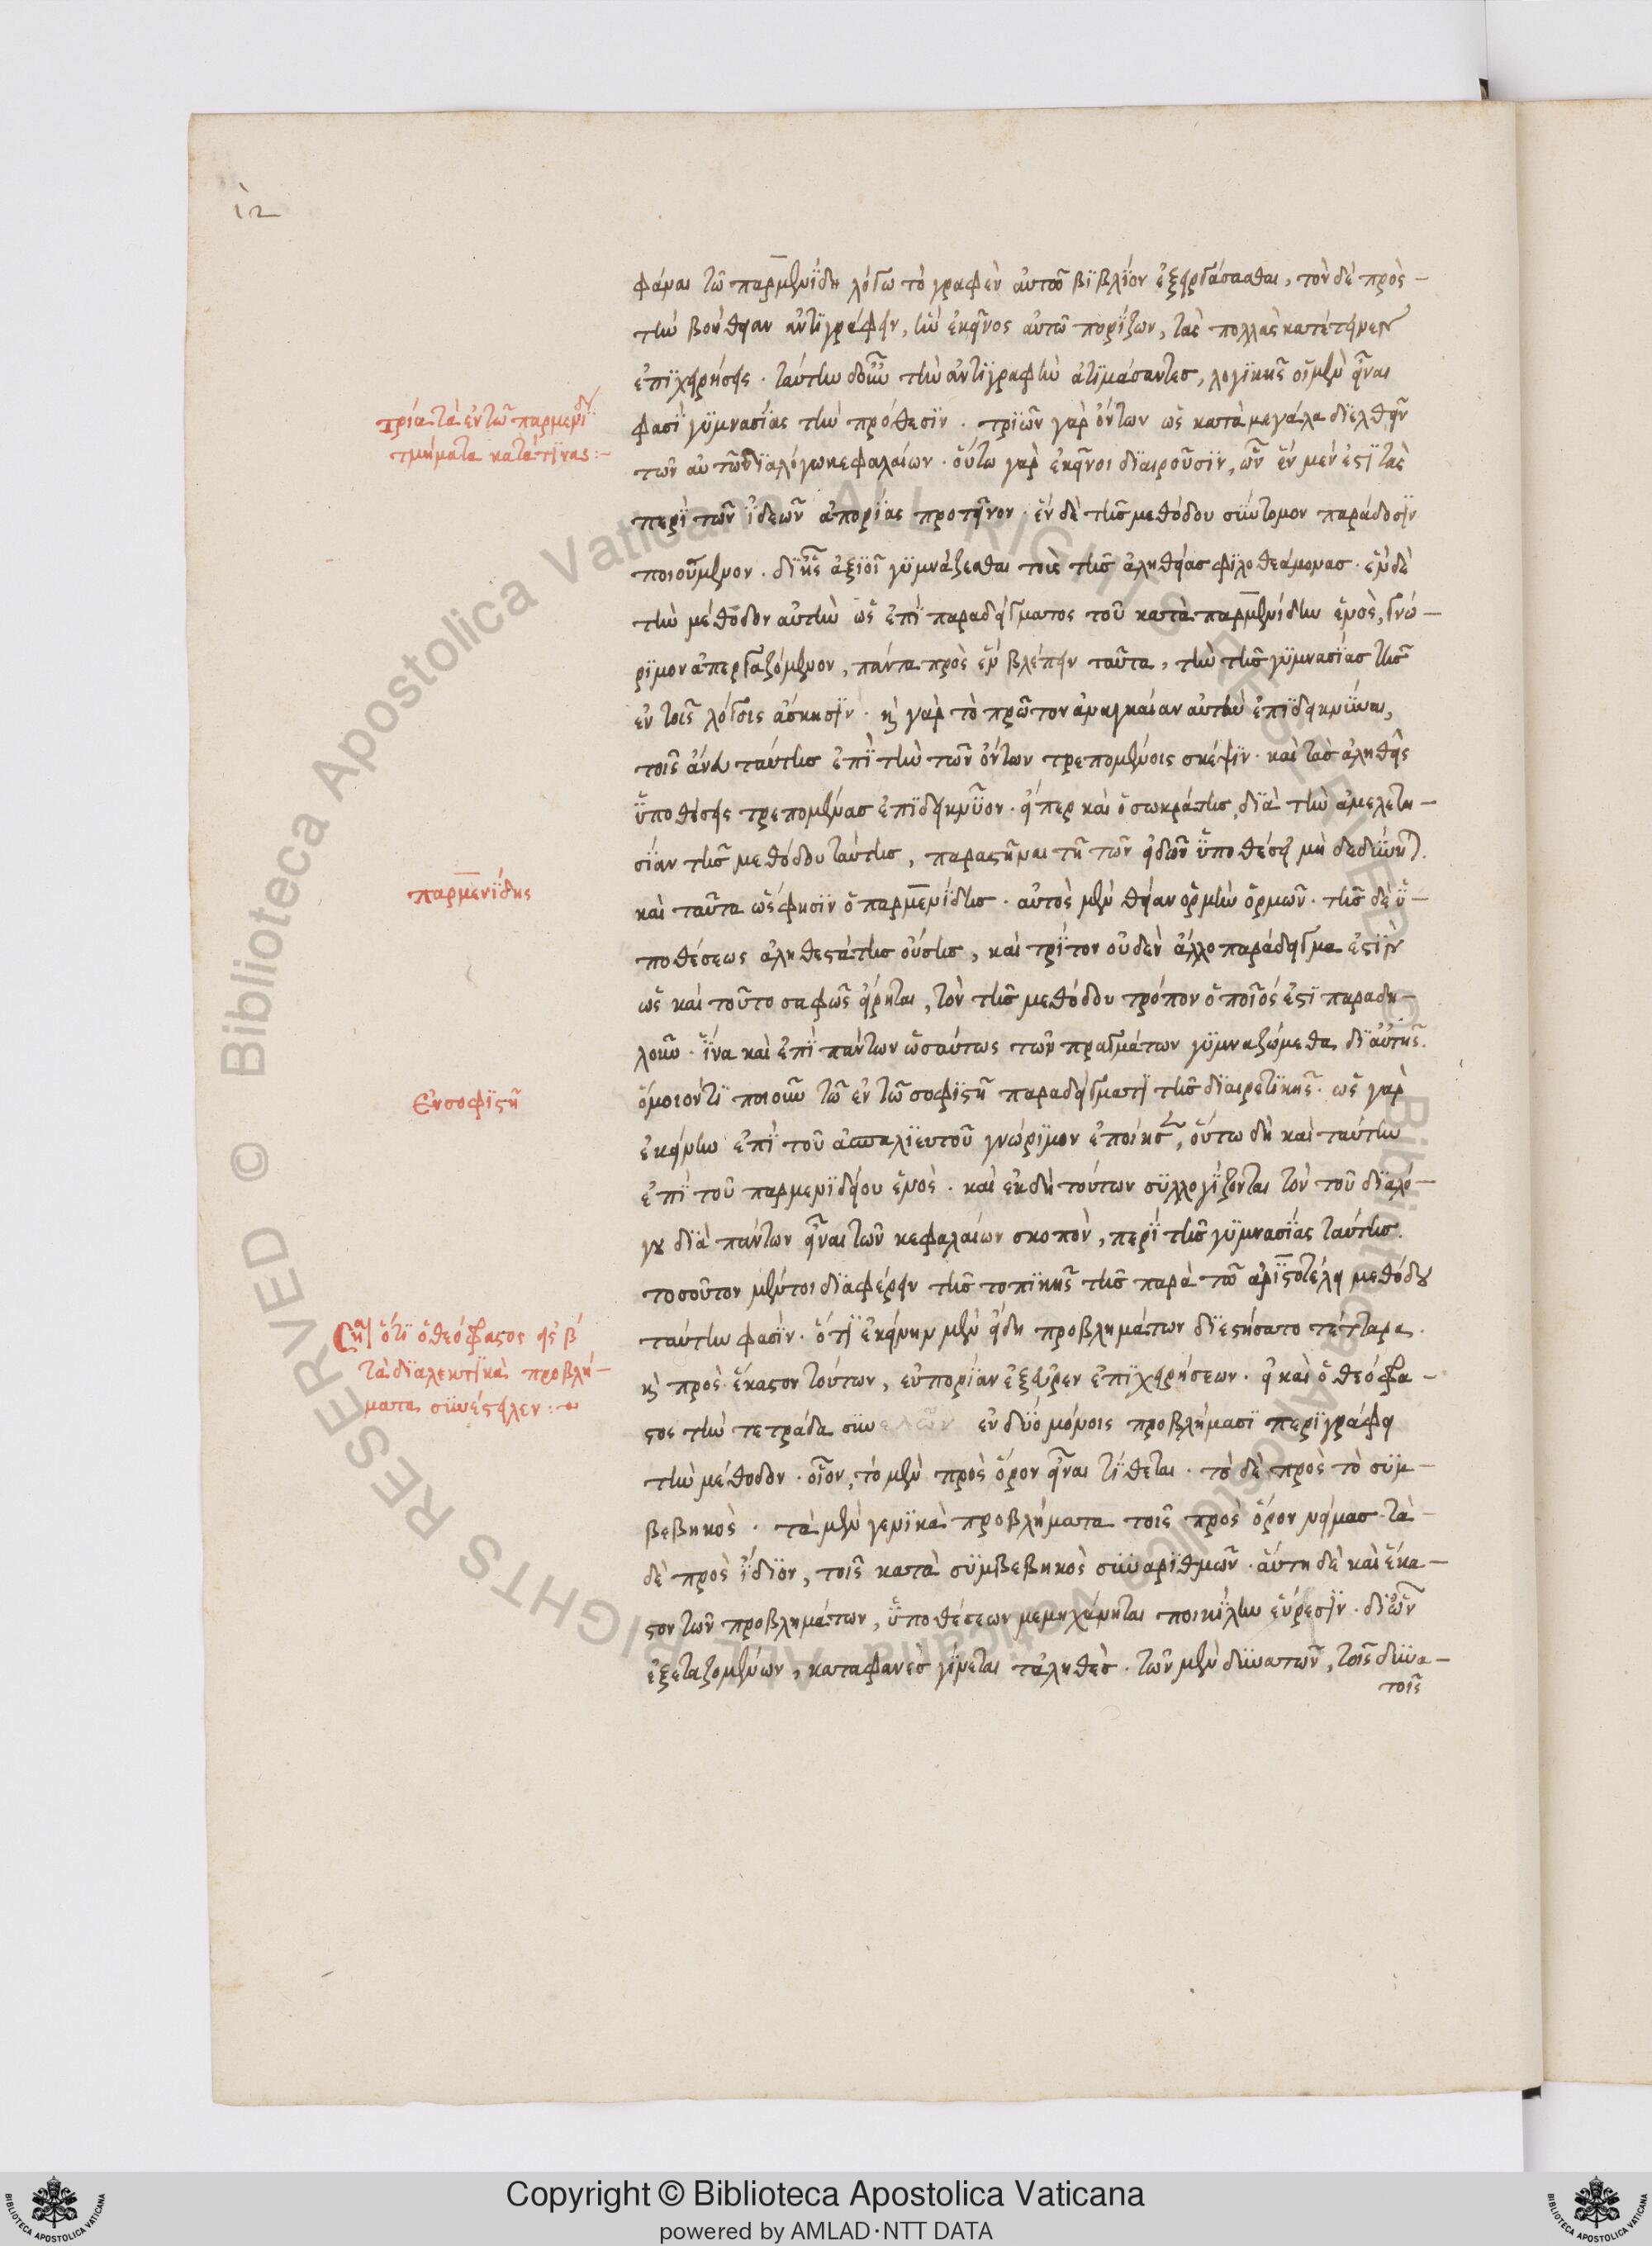 12
φάναι τῶ παρμενίδη λόγω τὸ γραφὲν αὐτοῦ βιβλίον ἐξειργάσασθαι, τὸν δὲ πρὸς-
τὴν βοήθειαν ἀντιγράφειν, ἣν ἐκεῖνος αὐτῶ πορίζων, τὰς πολλὰς κατέτεινεν
ἐπιχειρήσεις. ταύτην δ' οὖν τὴν ἀντιγραφὴν ἀτιμάσαντες, λογικῆς οἱ μὲν εἶναι
φασὶ γυμνασίας τὴν πρόθεσιν. τριῶν γὰρ ὄντων ὡς κατὰ μεγάλα διελθεῖν
τῶν αὐτῶν διαλόγω κεφαλαίων. οὕτω γὰρ ἐκεῖνοι διαιροῦσιν, ὧν ἓν μέν ἐστι τὰς
περὶ τῶν ἰδεῶν ἀπορίας προτεῖνον. ἓν δὲ τῆς μεθόδου σύντομον παράδοσιν
ποιούμενον. δι' ἧς ἀξιοῖ γυμνάζεσθαι τοὺς τῆς ἀληθείας φιλοθεάμονας. ἓν δὲ
τὴν μέθοδον αὐτὴν ὡς ἐπὶ παραδείγματος τοῦ κατὰ παρμενίδην ἑνὸς, γνώ-
ριμον ἀπεργαζόμενον, πάντα πρὸς ἓν βλέπειν ταῦτα, τὴν τῆς γυμνασίας τῆς
ἐν τοῖς λόγοις ἄσκησιν. καὶ γὰρ τὸ πρῶτον ἀναγκαίαν αὐτὴν ἐπιδεικνύναι,
τοῖς ἄνευ ταύτης ἐπὶ τὴν τῶν ὄντων τρεπομένοις σκέψιν. καὶ τὰς ἀληθεῖς
ὑποθέσεις τρεπομένας ἐπιδεικνύον. εἴπερ καὶ ὁ σωκράτης, διὰ τὴν ἀμελετη-
σίαν τῆς μεθόδου ταύτης, παραστῆναι τῆ τῶν εἰδῶν ὑποθέσει μὴ δεδύνηται.
καὶ ταῦτα ὥς φησιν ὁ παρμενίδης. αὐτὸς μὲν θείαν ὁρμὴν ὁρμῶν. τῆς δὲ ὑ-
ποθέσεως ἀληθεστάτης οὔσης, καὶ τρίτον οὐδὲν ἄλλο παράδειγμα ἐστὶν
ὡς καὶ τοῦτο σαφῶς εἴρηται, τὸν τῆς μεθόδου τρόπον ὁποῖός ἐστι παραδη-
λοῦν. ἵνα καὶ ἐπὶ πάντων ὡσαύτως τῶν πραγμάτων γυμναζώμεθα δι' αὐτῆς.
ὅμοιόν τι ποιοῦν τῶ ἐν τῶ σοφιστῆ παραδείγματι τῆς διαιρετικῆς. ὡς γὰρ
ἐκείνην ἐπὶ τοῦ ἀσπαλιευτοῦ γνώριμον ἐποίησεν, οὕτω δὴ καὶ ταύτην
ἐπὶ τοῦ παρμενιδείου ἑνὸς. καὶ ἐκ δὴ τούτων συλλογίζονται τὸν τοῦ διαλό-
γου διὰ πάντων εἶναι τῶν κεφαλαίων σκοπὸν, περὶ τῆς γυμνασίας ταύτης.
τοσοῦτον μέντοι διαφέρειν τῆς τοπικῆς τῆς παρὰ τῶ ἀριστοτέλει μεθόδου
ταύτην φασὶν. ὅτι ἐκείνην μὲν εἴδη προβλημάτων διεστήσατο τέτταρα.
καὶ πρὸς ἕκαστον τούτων, εὐπορίαν ἐξεῦρεν ἐπιχειρήσεων. εἰ καὶ ὁ θεόφρα-
στος τὴν τετράδα συνελὼν ἐν δυὸ μόνοις προβλήμασι περιγράφει
τὴν μέθοδον. οἷον, τὸ μὲν πρὸς ὅρον εἶναι τίθεται. τὸ δὲ πρὸς τὸ συμ-
βεβηκὸς. τὰ μὲν γενικὰ προβλήματα τοῖς πρὸς ὅρον νείμας. τὰ
δὲ πρὸς ἴδιον, τοῖς κατὰ συμβεβηκὸς συναριθμῶν. αὕτη δὲ καὶ ἕκα-
στον τῶν προβλημάτων, ὑποθέσεων μεμηχάνηται ποικίλην εὕρεσιν. δι' ὧν
ἐξεταζομένων, καταφανὲς γίνεται τἀληθὲς. τῶν μὲν δυνατῶν, τοῖς δυνα-
τοῖς
τρία τὰ ἐν τῶ παρμενίδη
τμήματα κατά τινας:-
παρμενίδης
Ἐν σοφιστῆ
Ση ὅτι ὁ θεόφραστος εἰς β
τὰ διαλεκτικὰ προβλή-
ματα συνέστειλεν:
© Biblioteca Apostolica Vaticana ALL RIGHTS RESERVED
© Biblioteca Apostolica Vaticana ALL RIGHTS RESERVED
Copyright © Biblioteca Apostolica Vaticana
powered by AMLAD·NTT DATA
BIBLIOTECA APOSTOLICA VATICANA
BIBLIOTECA APOSTOLICA VATICANA